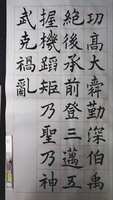 功高大舜勤深伯禹
絕後承前登三邁五
握機蹈矩乃聖乃神
武克禍亂